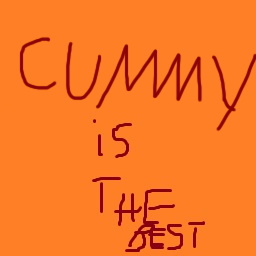 CUMMY
is
THE
BEST